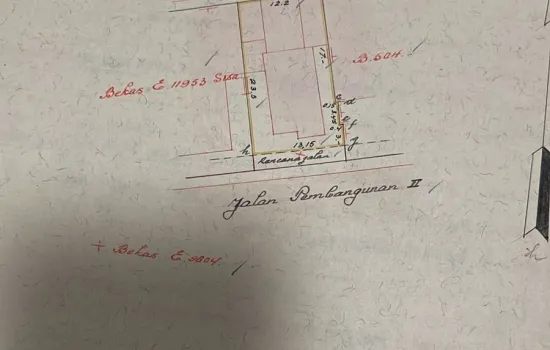 12.2
17.-
B.504.
Bekas E. 11953 Sisa
23.5
c
d
0.15
e
f
13.15
h
g
Rencana jalan
Jalan Pembangunan II
+ Bekas E.